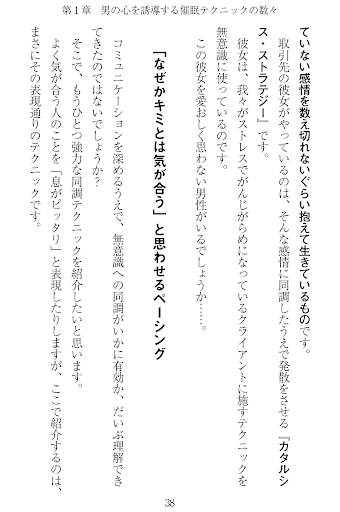 第1章　男の心を誘導する催眠テクニックの数々
ていない感情を数え切れないぐらい抱えて生きているものです。
　取引先の彼女がやっているのは、そんな感情に同調したうえで発散をさせる『カタルシ
ス・ストラテジー』です。
　彼女は、我々がストレスでがんじがらめになっているクライアントに施すテクニックを
無意識に使っているのです。
　この彼女を愛おしく思わない男性がいるでしょうか……。
「なぜかキミとは気が合う」と思わせるペーシング
　コミュニケーションを深めるうえで、無意識への同調がいかに有効か、だいぶ理解でき
てきたのではないでしょうか？
　そこで、もうひとつ強力な同調テクニックを紹介したいと思います。
　よく気が合う人のことを「息がピッタリ」と表現したりしますが、ここで紹介するのは、
まさにその表現通りのテクニックです。
38